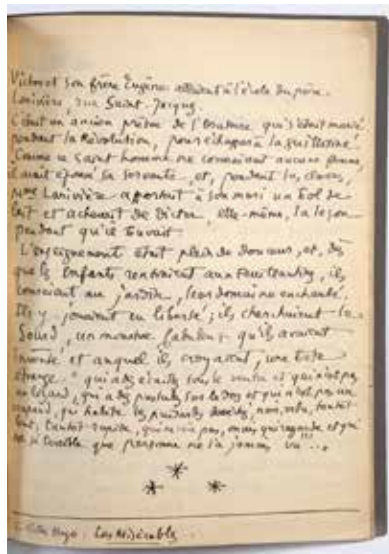 Victor et son frère Eugène allaient à l'école du père
Larivière, rue Saint-Jacques.
C'était un ancien prêtre de l'Oratoire qui s'était marié
pendant la Révolution, pour échapper à la guillotine.
Comme ce saint homme ne connaissait aucune femme,
il avait épousé sa servante, et, pendant les classes,
Mme Larivière apportait à son mari un bol de
lait et achevait de dicter, elle-même, la leçon
pendant qu'il buvait.
L'enseignement était plein de douceur, et, dès
que les enfants rentraient aux Feuillantines, ils
couraient au jardin, leur domaine enchanté.
Ils y jouaient en liberté ; ils cherchaient le
Sourd, un monstre fabuleux qu'ils avaient
inventé et auquel ils croyaient, une bête
étrange " qui a des écailles sous le ventre et qui n'est pas
un lézard, qui a des pustules sur le dos et qui n'est pas un
crapaud, qui habite les puisards, velu, tantôt
lent, tantôt rapide, qui ne crie pas, mais qui regarde et qui
est si terrible que personne ne l'a jamais vu
Victor Hugo : Les Misérables